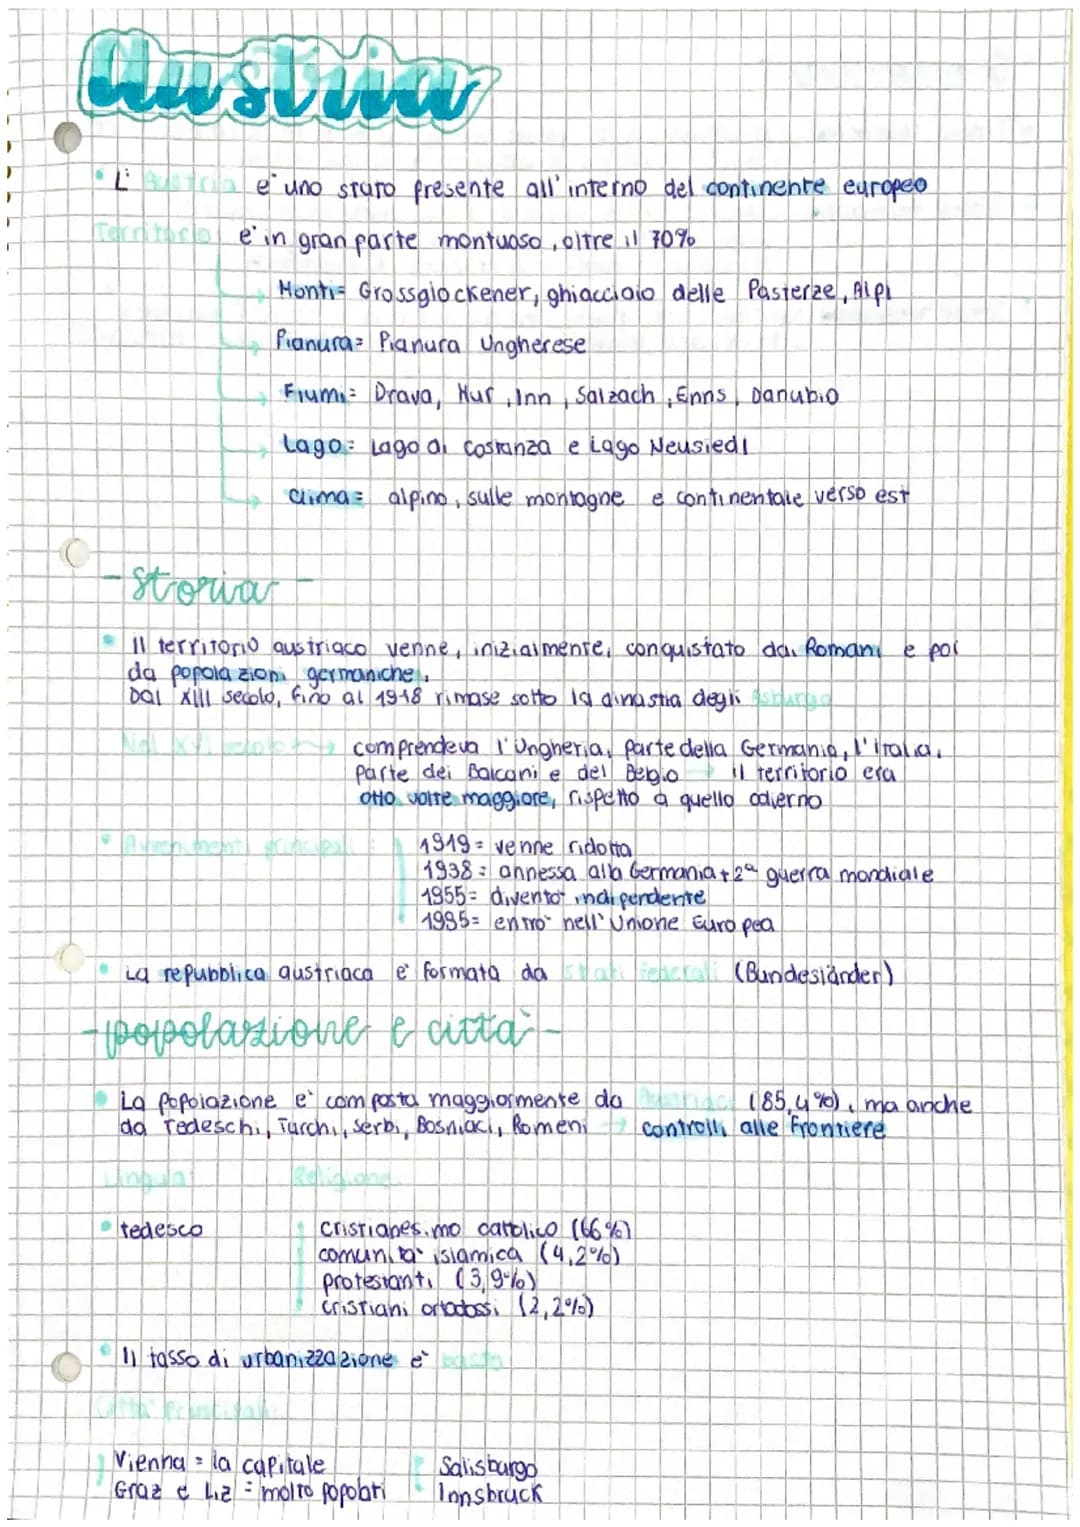 Austria
• L'Austria e' uno stato presente all'interno del continente europeo
Territorio e' in gran parte montuoso, oltre il 70%
Monti= Grossglockener, ghiacciaio delle Pasterze, Alpi
Pianura= Pianura Ungherese
Fiumi= Drava, Mur, Inn, Salzach, Enns, Danubio
Lago= Lago di Costanza e Lago Neusiedl
Clima= alpino, sulle montagne e continentale verso est
- Storia -
• Il territorio austriaco venne, inizialmente, conquistato dai Romani e poi
da popolazioni germaniche.
Dal XIII secolo, fino al 1918 rimase sotto la dinastia degli Asburgo
Nel XVI secolo → comprendeva l'Ungheria, parte della Germania, l'Italia,
parte dei Balcani e del Belgio → il territorio era
otto volte maggiore, rispetto a quello odierno
• Avvenimenti principali:
1919= venne ridotta
1938= annessa alla Germania + 2ª guerra mondiale
1955= diventò indipendente
1995= entrò nell'Unione Europea
• La repubblica austriaca e' formata da stati federali (Bundesländer)
- popolazione e citta' -
• La popolazione e' composta maggiormente da Austriaci (85,4%), ma anche
da Tedeschi, Turchi, Serbi, Bosniaci, Romeni → controlli alle frontiere
Lingua: Religione
• tedesco
cristianesimo cattolico (66%)
comunita' islamica (4,2%)
protestanti (3,9%)
cristiani ortodossi (2,2%)
• Il tasso di urbanizzazione e' basso
Citta' Principali:
Vienna = la capitale
Graz e Liz = molto popolati
Salisburgo
Innsbruck